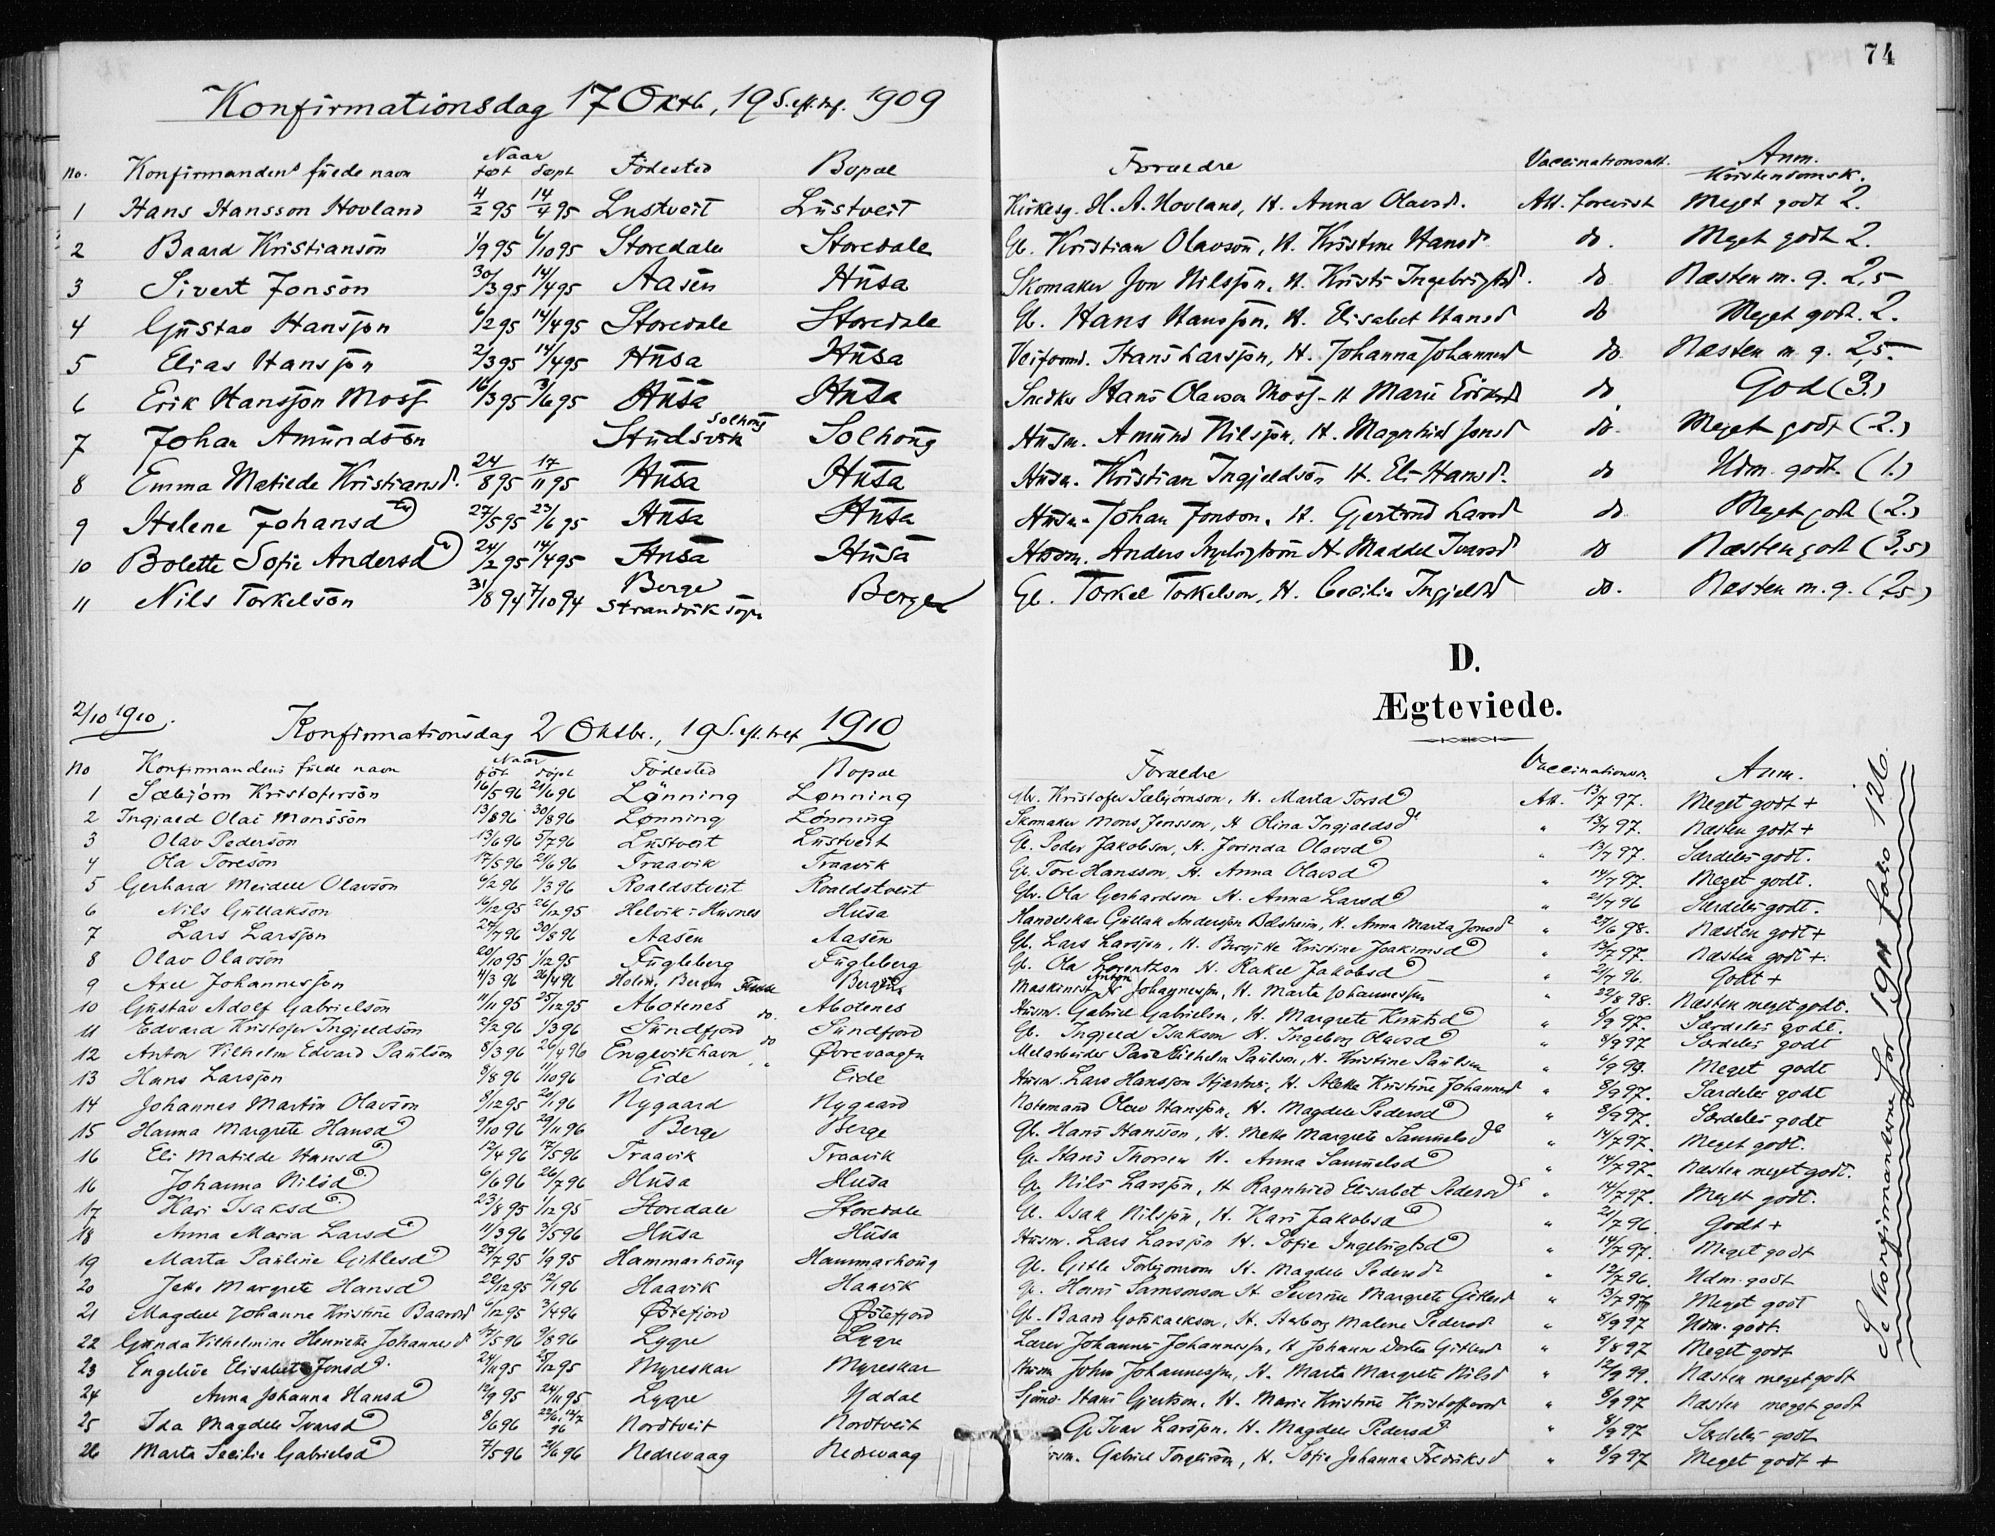 74
Konfirmationsdag 17 Oktb, 19 S. eft. tref. 1909
No. Konfirmandens fulde navn Naar født døpt Fødested Bopæl Forældre Vaccinationsatt. Anm. Kristendomsk.
1 Hans Hansson Hovland 4/2 95 14/4 95 Lustveit Lustveit Kirkesg. H. A. Hovland, H. Anna Olavsd. Att. forevist Meget godt 2.
2 Baard Kristiansön 1/9 95 6/10 95 Storedale Storedale Gb. Kristian Olavsön, H. Kristine Hansd. do. Meget godt 2.
3 Sivert Jonsön 30/3 95 14/4 95 Aasen Husa Skomaker Jon Nilsson, H. Kristi Ingebrigtsd. do Næsten m. g. 2,5
4 Gustav Hansson 6/2 95 14/4 95 Storedale Storedale Gb. Hans Hansson, H. Elisabet Hansd do Meget godt. 2.
5 Elias Hansson 2/3 95 14/4 95 Husa Husa Veiformd. Hans Larsson, H. Johanna Johannesd do Næsten m. g. 2,5.
6 Erik Hansson Moss 16/3 95 3/6 95 Husa Husa Snedker Hans Olavson Moss - H Marie Eriksd do God (3.)
7 Johan Amundsön Studsvik Solhoug Solhoug Husm. Amund Nilsson, H. Magnhild Jonsd do. Meget godt (2.)
8 Emma Matilde Kristiansd. 24/8 95 17/11 95 Husa Husa Husm. Kristian Ingjeldsön H. Eli Hansd. do Udm. godt. (1.)
9 Helene Johansd 27/5 95 23/6 95 Husa Husa Husm. Johan Jonson, H. Gjertrud Larsd do Meget godt (2.)
10 Bolette Sofie Andersd 24/2 95 14/4 95 Husa Husa Husm. Anders H. Maddel Ivarsd do Næsten godt (3,5)
11 Nils Torkelsön 31/8 94 7/10 94 Berge Strandvik sogn Berge Gb. Torkel Torkelson, H. Cecilia Ingjeldsd do. Næsten m. g. (2,5)
D.
Ægteviede.
2/10 1910. Konfirmationsdag 2 Oktbr., 19 S. eft. tref 1910
No Konfirmandens fulde navn Naar föt döpt Födested Bopæl Forældre Vaccinationsa. Anm.
1 Sæbjörn Kristofersön 16/5 96 21/6 96 Lönning Lønning Gbr. Kristofer Sæbjörnson, H. Marta Torsd Att. 13/7 97. Meget godt +
2 Ingjald Olai Monssön 13/8 96 30/8 96 Lønning Lönning Skomaker Mons Jensson, H Olina Ingjaldsd " 13/7 97. Næsten godt +
3 Olav Pederson 13/6 96 5/7 96 Lustveit Lustveit Gb. Peder Jakobson, H. Jorinda Olavsd " 13/7 97. Særdeles godt.
4 Ola Toresön 17/5 96 21/6 96 Traavik Traavik Gb. Tore Hansson, H. Anna Olavsd " 14/7 97. Meget godt.
5 Gerhard Meidell Olavsön 6/2 96 1/3 96 Roaldstveit Roaldstveit Gbr. Ola Gerhardson H. Anna Larsd " 21/7 96 Særdeles godt.
6 Nils Gullakson 16/12 95 26/12 95 Helvik i Husnes Husa Handelskar Gullak Anderson Bolsheim, H. Anna Marta Jonsd " 27/6 98. Næsten godt +
7 Lars Larsson 27/7 96 30/8 96 Aasen Aasen Gb. Lars Larsson, H. Birgitte Kristine Joakimsd " 13/7 97. Næsten godt +.
8 Olav Olavson 20/10 95 1/12 95 Fugleberg Fugleberg Gb. Ola Lorentzon H. Rakel Jakobsd " 21/7 96. Godt +
9 Axel Johannesson 4/3 96 26/4 96 Holen, Bergen Maskinist Anton Johannesson, H. Marta Johannessen " 22/8 98. Næsten meget godt.
10 Gustav Adolf Gabrielsön 11/11 95 25/12 95 Abotenes do. Abotenes Husm. Gabriel Gabrielsen, H. Margrete Knutsd " 8/9 97. Særdeles godt.
11 Edvard Kristofer Ingjeldsön 2/2 96 1/3 96 Sundfjord do Sundfjord Gb. Ingjeld Isakson H. Ingeborg Olavsd " 8/9 97 Særdeles godt
12 Anton Vilhelm Edvard Paulson 8/3 96 26/4 96 Engevikhavn " Øvrevaagen Melarbeider Paul Vilhelm Paulson, H. Kristine Paulsen " 6/9 99. Meget godt
13 Hans Larsson 8/8 96 11/10 96 Eide Eide Husm. Lars Hansson H. Alette Kristine Johannesd " 8/9 97. Særdeles godt
14 Johannes Martin Olavsön 8/12 95 20/1 96 Nygaard Nygaard Notemand Olav Hansson, H. Magdele Pedersd " 8/9 97. Særdeles godt
15 Hanna Margrete Hansd 9/10 96 29/11 96 Berge Berge Gb. Hans Hansson, H. Mette Margrete Samuelsd " 14/7 97. Meget godt.
16 Eli Matilde Hansd 12/4 96 17/5 96 Traavik Traavik Gb. Hans Thorsen H. Anna Samuelsd " 14/7 97. Næsten meget godt.
16 Johanna Nilsd 6/6 96 26/7 96 Husa Husa Gb. Nils Larsson, H Ragnhild Elisabet Pedersd " 14/7 97. Meget godt.
17 Kari Isaksd 23/8 95 1/12 95 Storedale Storedale Gb. Isak Nilsson, H. Kari Jakobsd " 21/7 96 Godt +
18 Anna Maria Larsd 11/3 96 3/5 96 Husa Husa Husm. Lars Larsson H. Sofie Ingebrigtsd " 14/7 97. Meget godt
19 Marta Pauline Gitlesd 27/7 95 1/9 95 Hammarhoug Hammarhoug Gb. Gitle Torbjörnson H. Magdele Pedersd " 12/7 96. Udm. godt
20 Margrete Hansd 22/12 95 12/1 96 Haavik Haavik Gb. Hans Samsonson H. Severine Margrete Gitlesd " 13/7 97 Meget godt
21 Magdel Johanne Kristine Baardsd 6/12 95 3/4 96 Østefjord Østefjord Gb. Baard Gotskalkson, H. Malene Pedersd " 8/9 97 Udm. godt
22 Gunda Vilhelmine Henriette Johannesd 14/5 96 9/8 96 Lygre Lygre Lærer Johannes Johannesson, H Johanne Dortea Gitlesd " 9/8 97 Meget godt
23 Engeline Elisabet Jonsd. 24/11 95 25/12 95 Myreskar Myreskar Husm John Johannesson, H. Marta Margrete Nilsd " 12/9 99. Næsten meget godt
24 Anna Johanna Hansd 12/9 95 24/11 95 Lygre Yddal Sjömd. Hans Gjertson, H. Marie Kristine Kristoffersd " 8/9 97 Næsten meget godt
25 Ida Magdele Ivarsd 8/6 96 22/6 12/7 96 Nordtveit Nordtveit Gb Ivar Larsson, H. Magdele Pedersd " 8/9 97 Særdeles godt
26 Marta Secilie Gabrielsd 7/5 96 21/6 96 Nedrevaag Nedrevaag Husm. Gabriel H. Sofie Johanna Fredriksd " 8/9 97 Meget godt +
Se Konfirmanterne for 1911 folio 126.